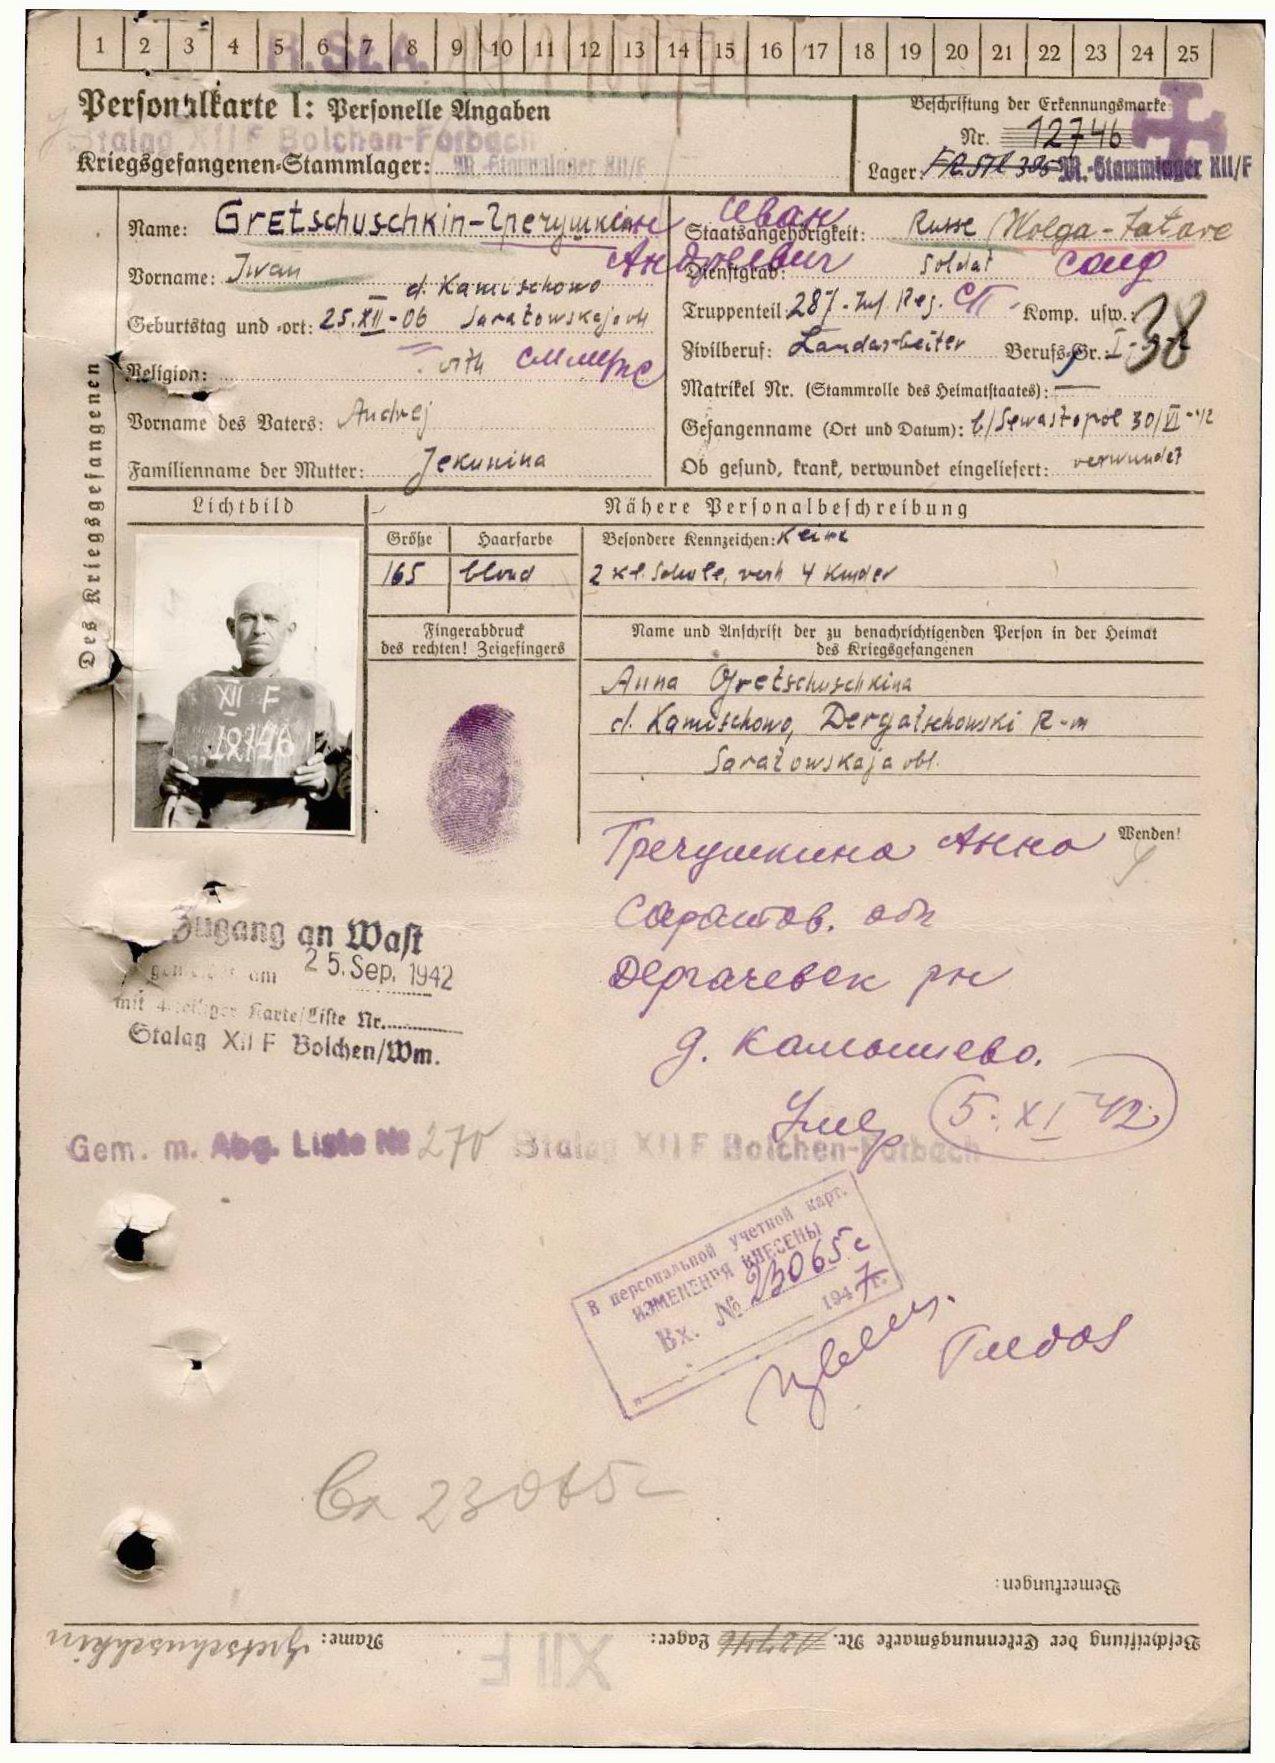 1 2 3 4 5 6 7 8 9 10 11 12 13 14 15 16 17 18 19 20 21 22 23 24 25
Personalkarte I: Personelle Angaben
Beschriftung der Erkennungsmarke
Stalag XII F Bolchen-Forbach
Nr. 12746
Kriegsgefangenen-Stammlager: M.-Stammlager XII/F
Lager: M.-Stammlager XII/F
Name: Gretschuschkin - Гречушкин
Иван
Андреевич
Staatsangehörigkeit: Russe (Wolga-Tatare
Vorname: Iwan
Dienstgrad: Soldat солд
d. Kamischowo
Geburtstag und -ort: 25.XII-06 Saratowskaja obl
Truppenteil: 287-Inf. Reg. СП Komp. usw.:
38
Zivilberuf: Landarbeiter Berufs-Gr.:
Religion: orth
Matrikel Nr. (Stammrolle des Heimatstaates): —
Vorname des Vaters: Andrej
Gefangenname (Ort und Datum): b/Sewastopol 30/VI-42
Familienname der Mutter: Jekunina
Ob gesund, krank, verwundet eingeliefert: verwundet
Des Kriegsgefangenen
Lichtbild
Nähere Personalbeschreibung
Größe Haarfarbe Besondere Kennzeichen: Keine
165 blond 2 kl. Schule, verh 4 Kinder
Fingerabdruck
des rechten! Zeigefingers
Name und Anschrift der zu benachrichtigenden Person in der Heimat
des Kriegsgefangenen
XII F
12746
Anna Gretschuschkina
d. Kamischowo, Dergatschowski R-n
Saratowskaja obl.
Wenden!
Гречушкина Анна
Саратов. обл
Дергачевск рн
д. Камышево.
Умер 5.XI 42
Zugang an Wast
gemeldet am 25. Sep. 1942
mit 4-teiliger Karte/Liste Nr.
Stalag XII F Bolchen/Wm.
Gem. m. Abg. Liste № 270 Stalag XII F Bolchen-Forbach
В персональной учетной карт.
ИЗМЕНЕНИЯ ВНЕСЕНЫ
Вх. № 23065с
1947 г.
Вх 23065с
Bemerkungen:
Beschriftung der Erkennungsmarke Nr. 12746 Lager: XII F Name: Gretschuschkin